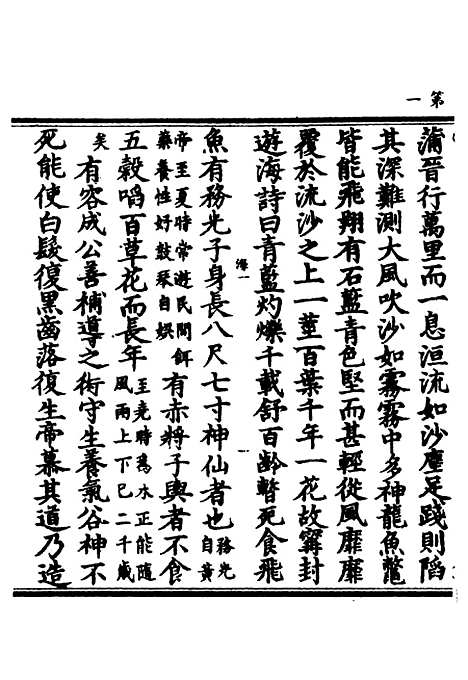 第一
蒲晉行萬里而一息洹流如沙塵足踐則陷
其深難測大風吹沙如霧霧中多神龍魚鼈
皆能飛翔有石藍青色堅而甚輕從風靡靡
覆於流沙之上一莖百葉千年一花故甯封
遊海詩曰青藍灼爍千載舒百齡暫死食飛
魚有務光子身長八尺七寸神仙者也務光自黃
帝至夏時常遊民間餌藥養性好鼓琴自娛有赤將子輿者不食
五穀啗百草花而長年至堯時為木正能隨風雨上下已二千歲
矣有容成公善補導之術守生養氣谷神不
死能使白髮復黑齒落復生帝慕其道乃造